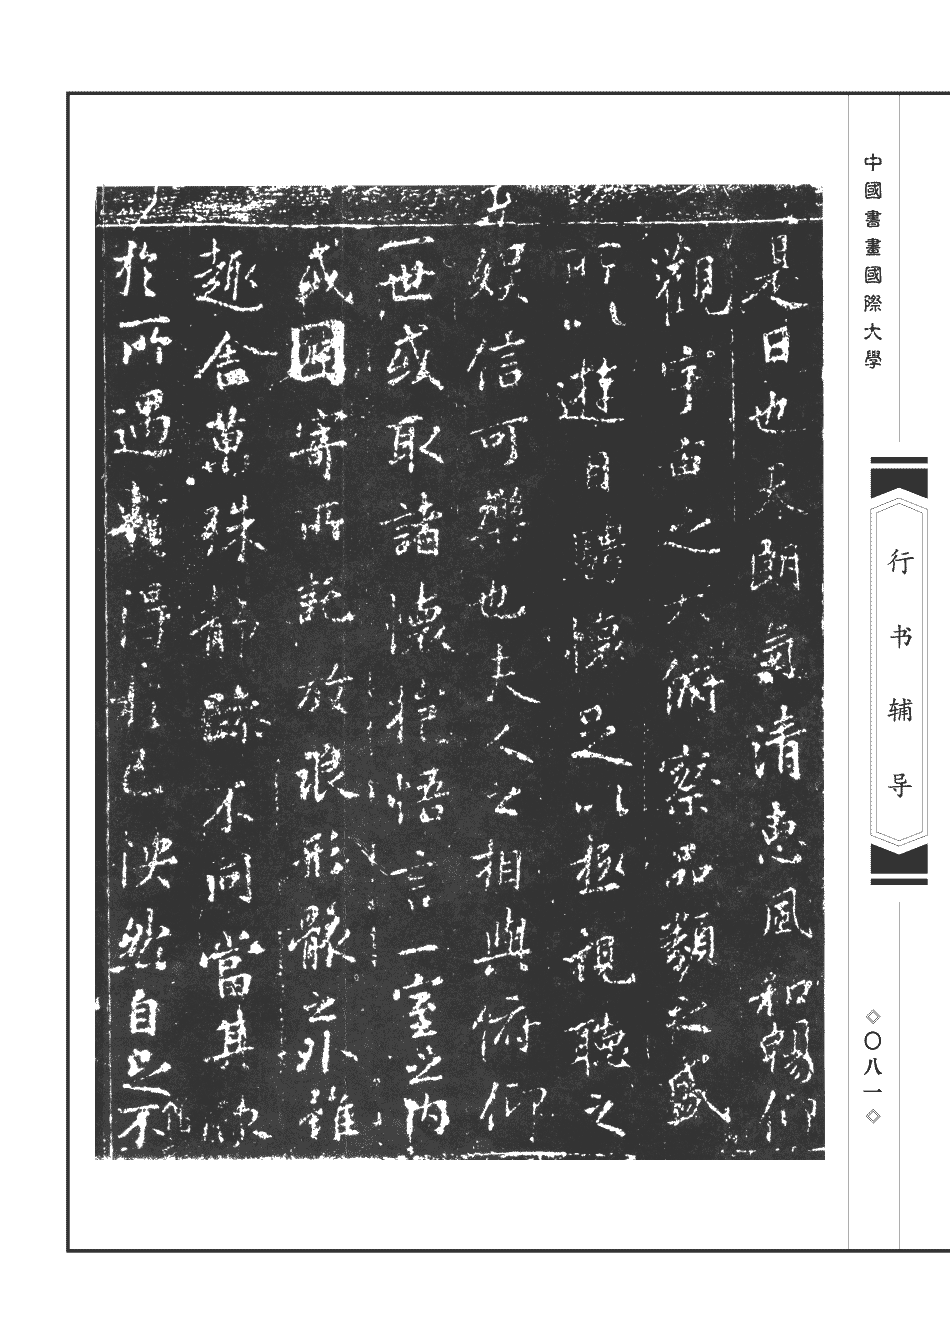 是日也天朗氣清惠風和暢仰
觀宇宙之大俯察品類之盛
所以遊目騁懷足以極視聽之
娛信可樂也夫人之相與俯仰
一世或取諸懷抱悟言一室之內
或因寄所託放浪形骸之外雖
趣舍萬殊靜躁不同當其欣
於所遇輒得於己快然自足不
中國書畫國際大學
行书辅导
〇八一